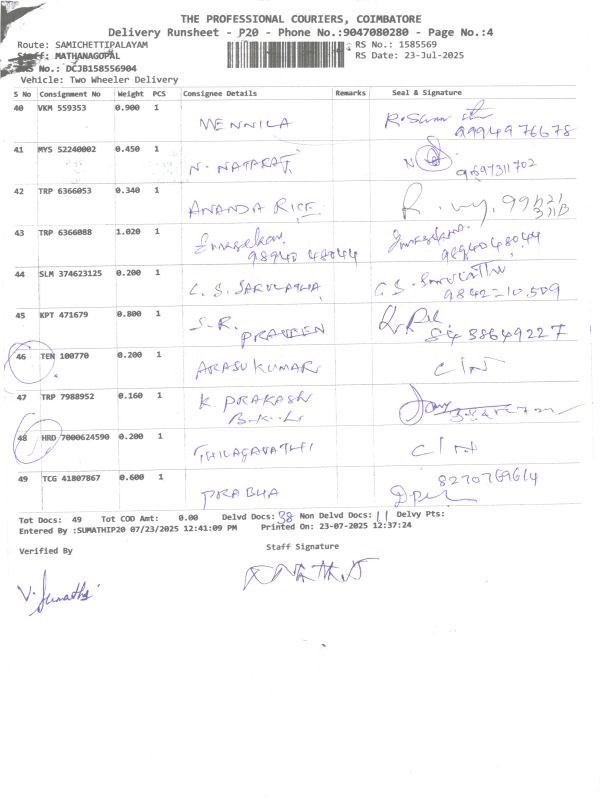 THE PROFESSIONAL COURIERS, COIMBATORE
Delivery Runsheet - P20 - Phone No.:9047080280 - Page No.:4
Route: SAMICHETTIPALAYAM
RS No.: 1585569
Staff: MATHANAGOPAL
RS Date: 23-Jul-2025
RS No.: DCJB158556904
Vehicle: Two Wheeler Delivery
S No Consignment No Weight PCS Consignee Details Remarks Seal & Signature
40 VKM 559353 0.900 1 MENNILA
9994976678
41 MYS 52240002 0.450 1 N. NATARAJ
9697311702
42 TRP 6366053 0.340 1 ANANDA RICE
43 TRP 6366088 1.020 1
98940 48044 98940 48044
44 SLM 374623125 0.200 1 C. S. SARULATHA
9842210509
45 KPT 471679 0.800 1 S.R. PRAVEEN
46 TEN 100770 0.200 1 ARASU KUMAR
47 TRP 7988952 0.160 1 K. PRAKASH
48 HRD 7000624590 0.200 1 THILAGAVATHI
49 TCG 41807867 0.600 1 PRABHA
Tot Docs: 49 Tot COD Amt: 0.00 Delvd Docs: 38 Non Delvd Docs: 11 Delvy Pts:
Entered By :SUMATHIP20 07/23/2025 12:41:09 PM Printed On: 23-07-2025 12:37:24
Verified By Staff Signature
V. Sumathi